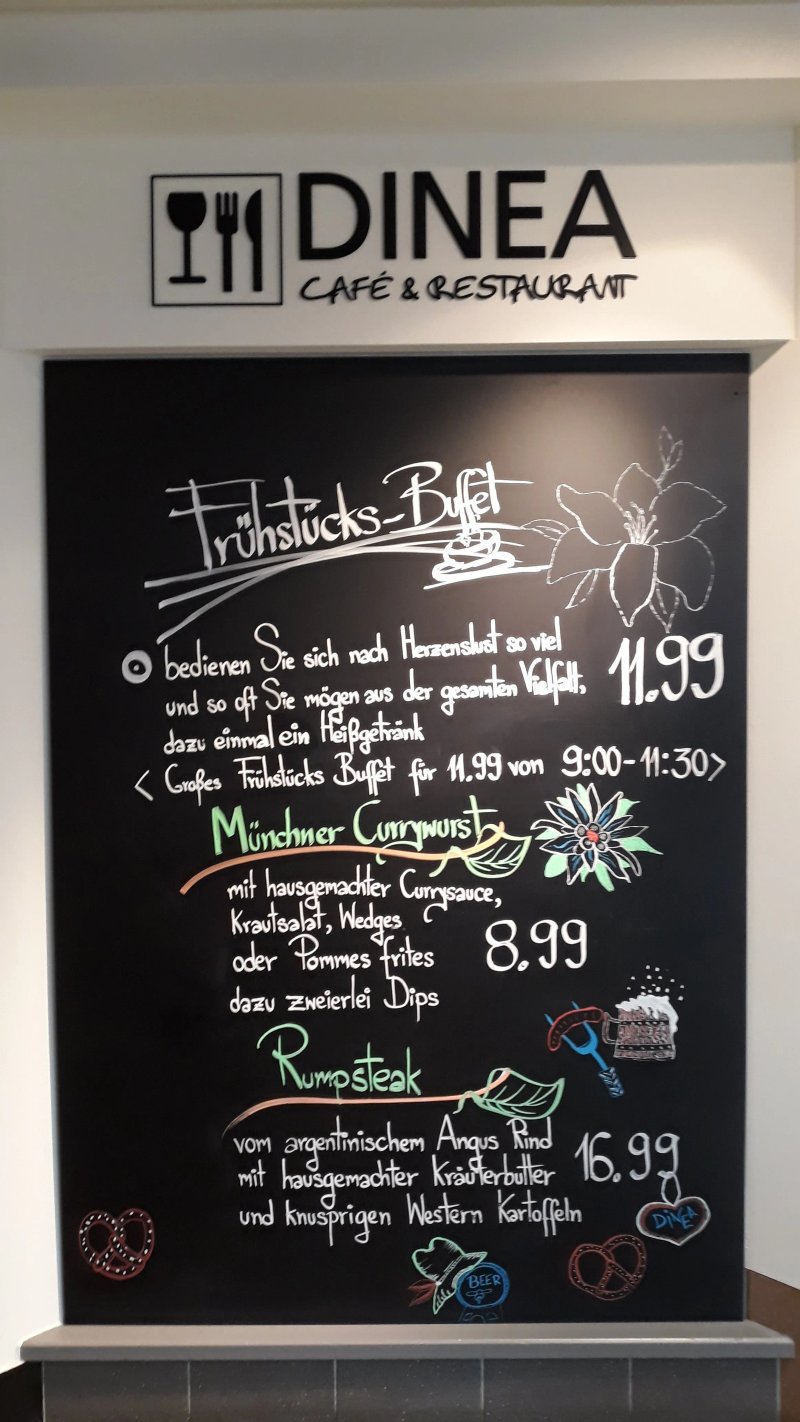 DINEA
CAFÉ & RESTAURANT
Frühstücks-Buffet
bedienen Sie sich nach Herzenslust so viel
und so oft Sie mögen aus der gesamten Vielfalt,
dazu einmal ein Heißgetränk
11.99
< Großes Frühstücks Buffet für 11.99 von 9:00-11:30>
Münchner Currywurst
mit hausgemachter Currysauce,
Krautsalat, Wedges
oder Pommes frites
dazu zweierlei Dips
8.99
Rumpsteak
vom argentinischem Angus Rind
mit hausgemachter Kräuterbutter
und knusprigen Western Kartoffeln
16.99
DINEA
BEER